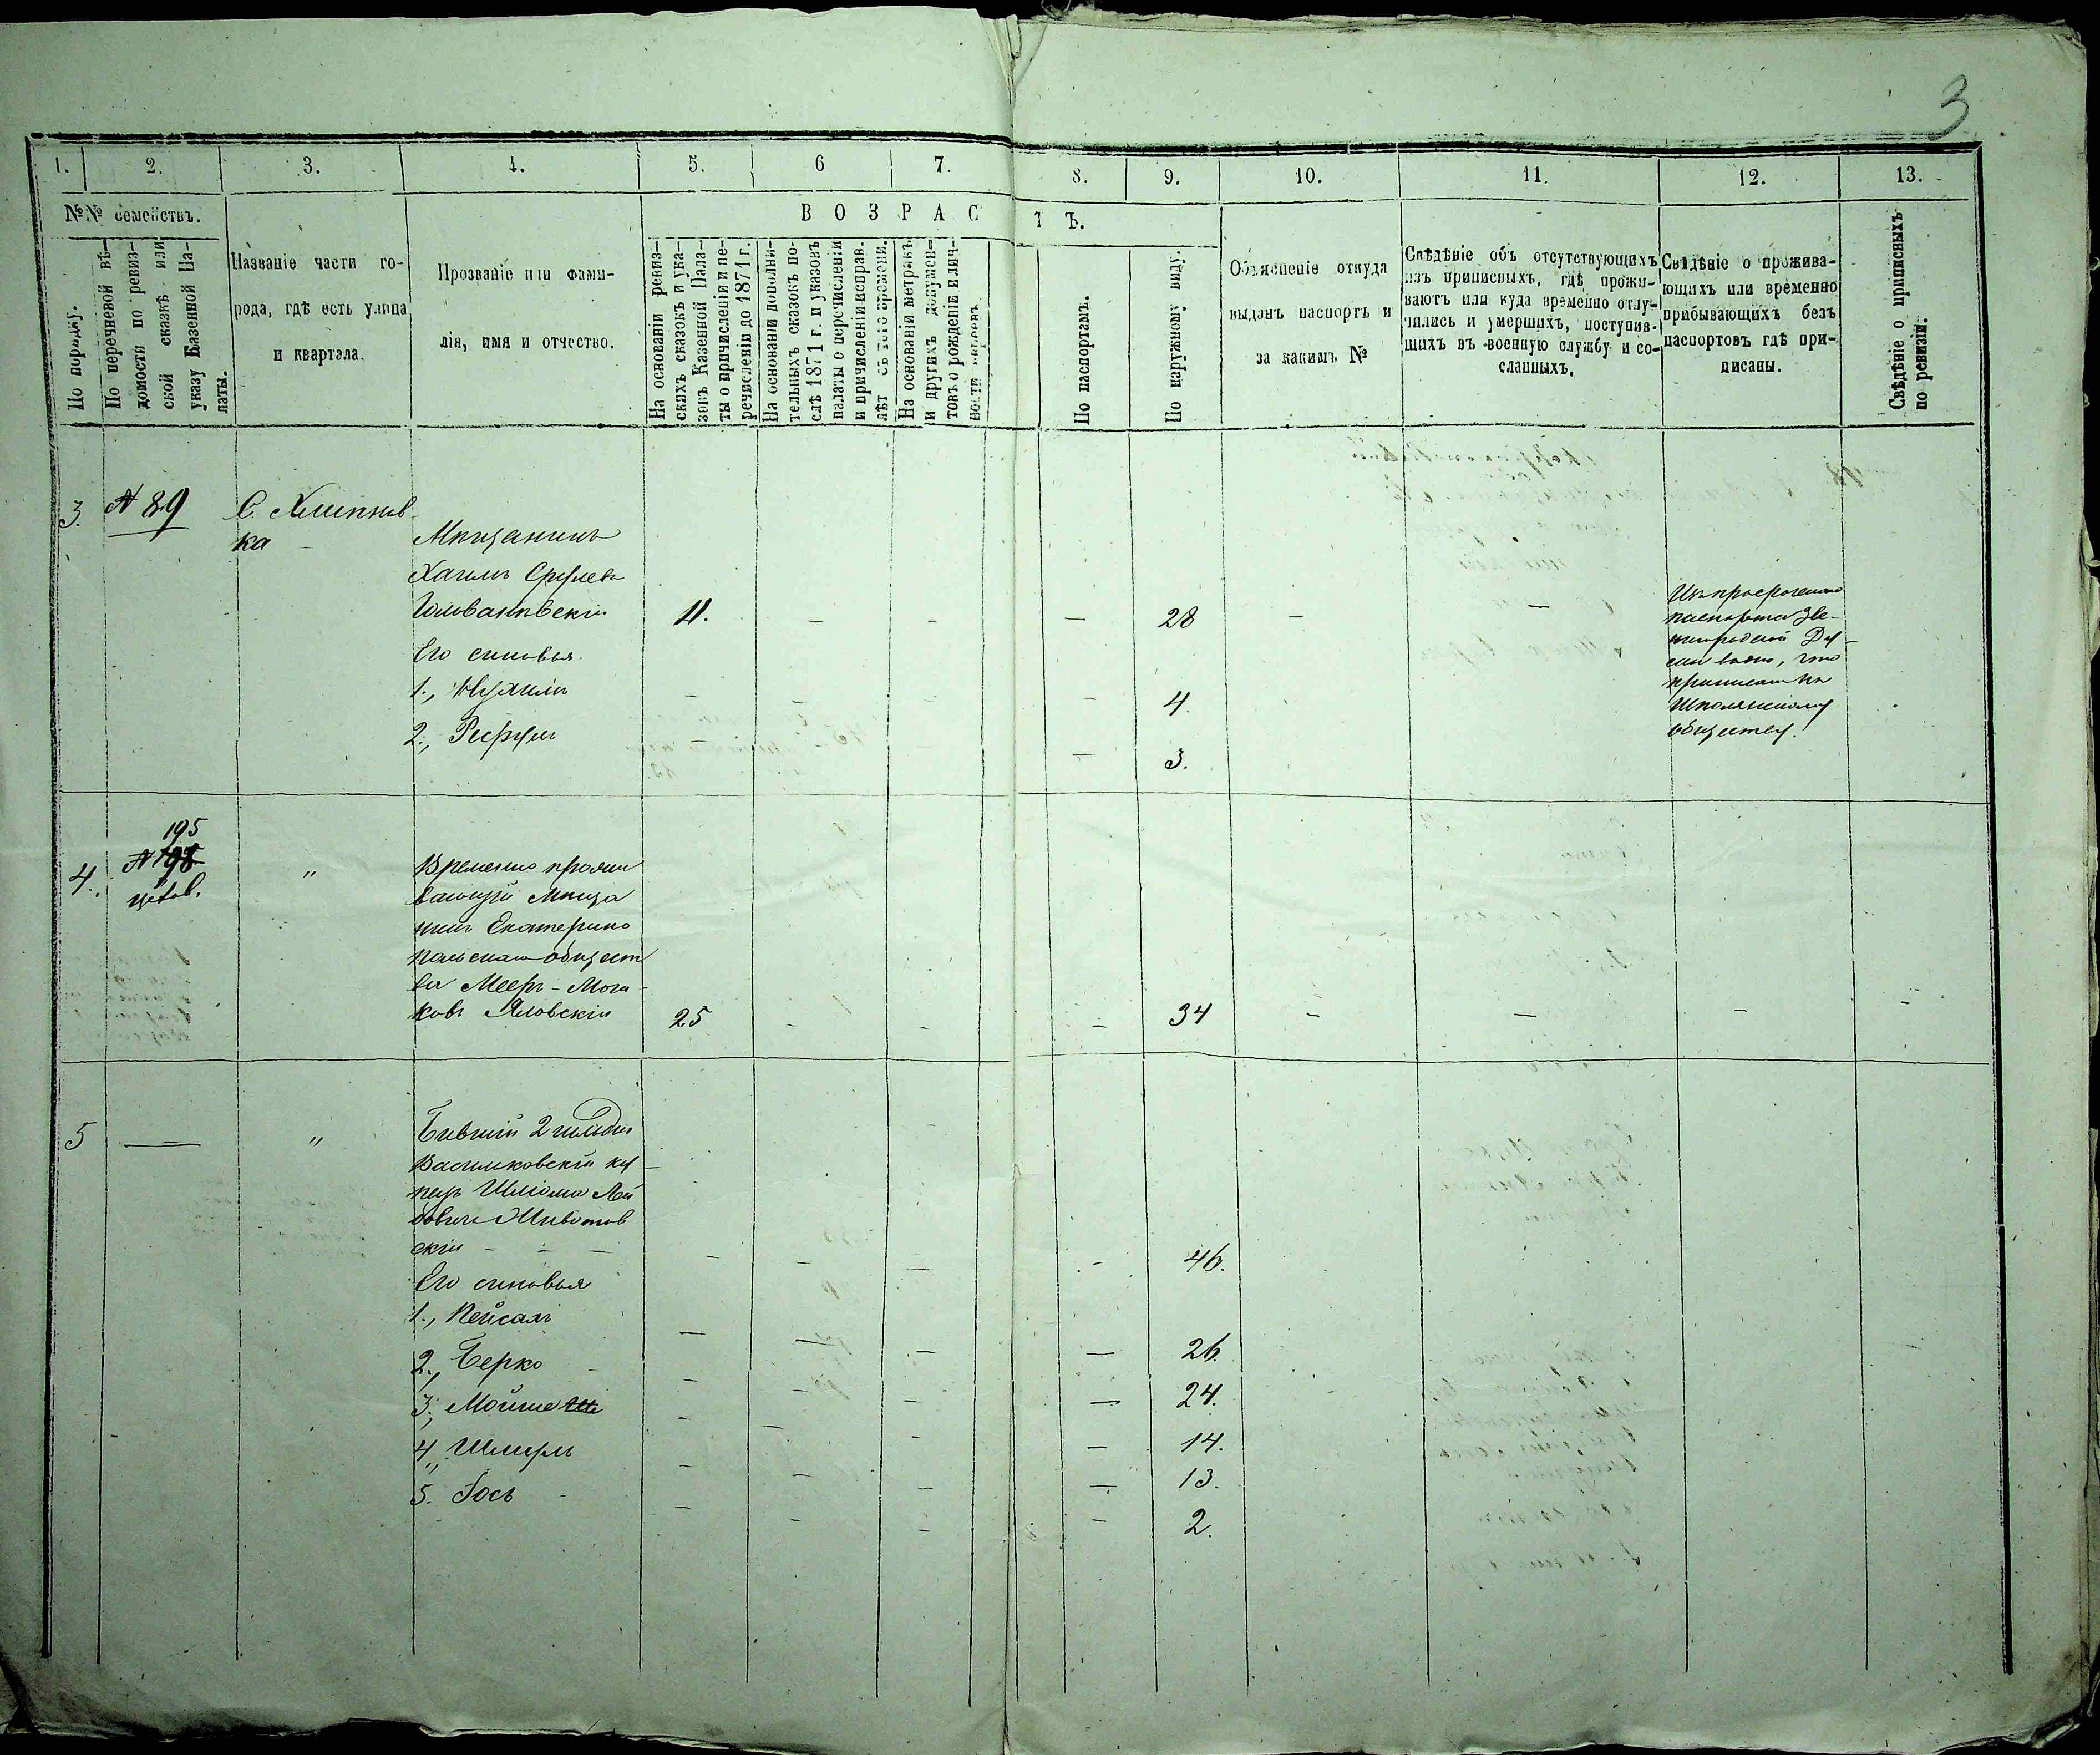 3
1. 2. 3. 4. 5. 6 7. 8. 9. 10. 11. 12. 13.
№№ семействъ.
По порядку.
По перечневой вѣ-
домости по ревиз-
ской сказкѣ или
указу Казенной Па-
латы.
Названіе части го-
рода, гдѣ есть улица
и квартала.
Прозваніе или фами-
лія, имя и отчество.
ВОЗРАСТЪ.
На основаніи ревиз-
скихъ сказокъ и ука-
зовъ Казенной Пала-
ты о причисленіи и пе-
речисленіи до 1871 г.
На основаніи дополни-
тельныхъ сказокъ по-
слѣ 1871 г. и указовъ
палаты о перечисленіи
и причисленіи исправ.
лѣт съ того времени.
На основаніи метрикъ
и другихъ докумен-
товъ о рожденіи и лич-
ности
По паспортамъ.
По наружному виду.
Объясненіе откуда
выданъ паспортъ и
за какимъ №
Свѣдѣніе объ отсутствующихъ
изъ приписныхъ, гдѣ прожи-
ваютъ или куда временно отлу-
чились и умершихъ, поступив-
шихъ въ военную службу и со-
сланныхъ.
Свѣдѣніе о прожива-
ющихъ или временно
прибывающихъ безъ
паспортовъ гдѣ при-
писаны.
Свѣдѣніе о приписныхъ
по ревизіи.
3. № 89 С. Хлипнов
ка
Мѣщанинъ
Хаимъ Срулевъ
Головановскій 11. - - - 28 - -
Его сыновья
1., Нухимъ - - - - 4.
2., - - - - 3.
Изъ просроченнаго
паспорта Зве-
нигородской Ду-
мы видно, что
приписанъ къ
Шполянскому
обществу.
4. 195
№ 198
"
Временно прожи
вающій мѣща
нинъ Екатерино
польскаго общест
ва Мееръ-Мош
ковъ Яловскій 25 - - - 34 - - - -
5 — " Бывшій 2 гильдіи
Васильковскій ку
пецъ Шлioма Лей
бовичъ Животов
скій - - - - - - 46.
Его сыновья
1., Пейсахъ - - - - 26.
2., Берко - - - - 24.
3., Мойше - - - - 14.
4., Шмуль - - - - 13.
5. Іось - - - - 2.